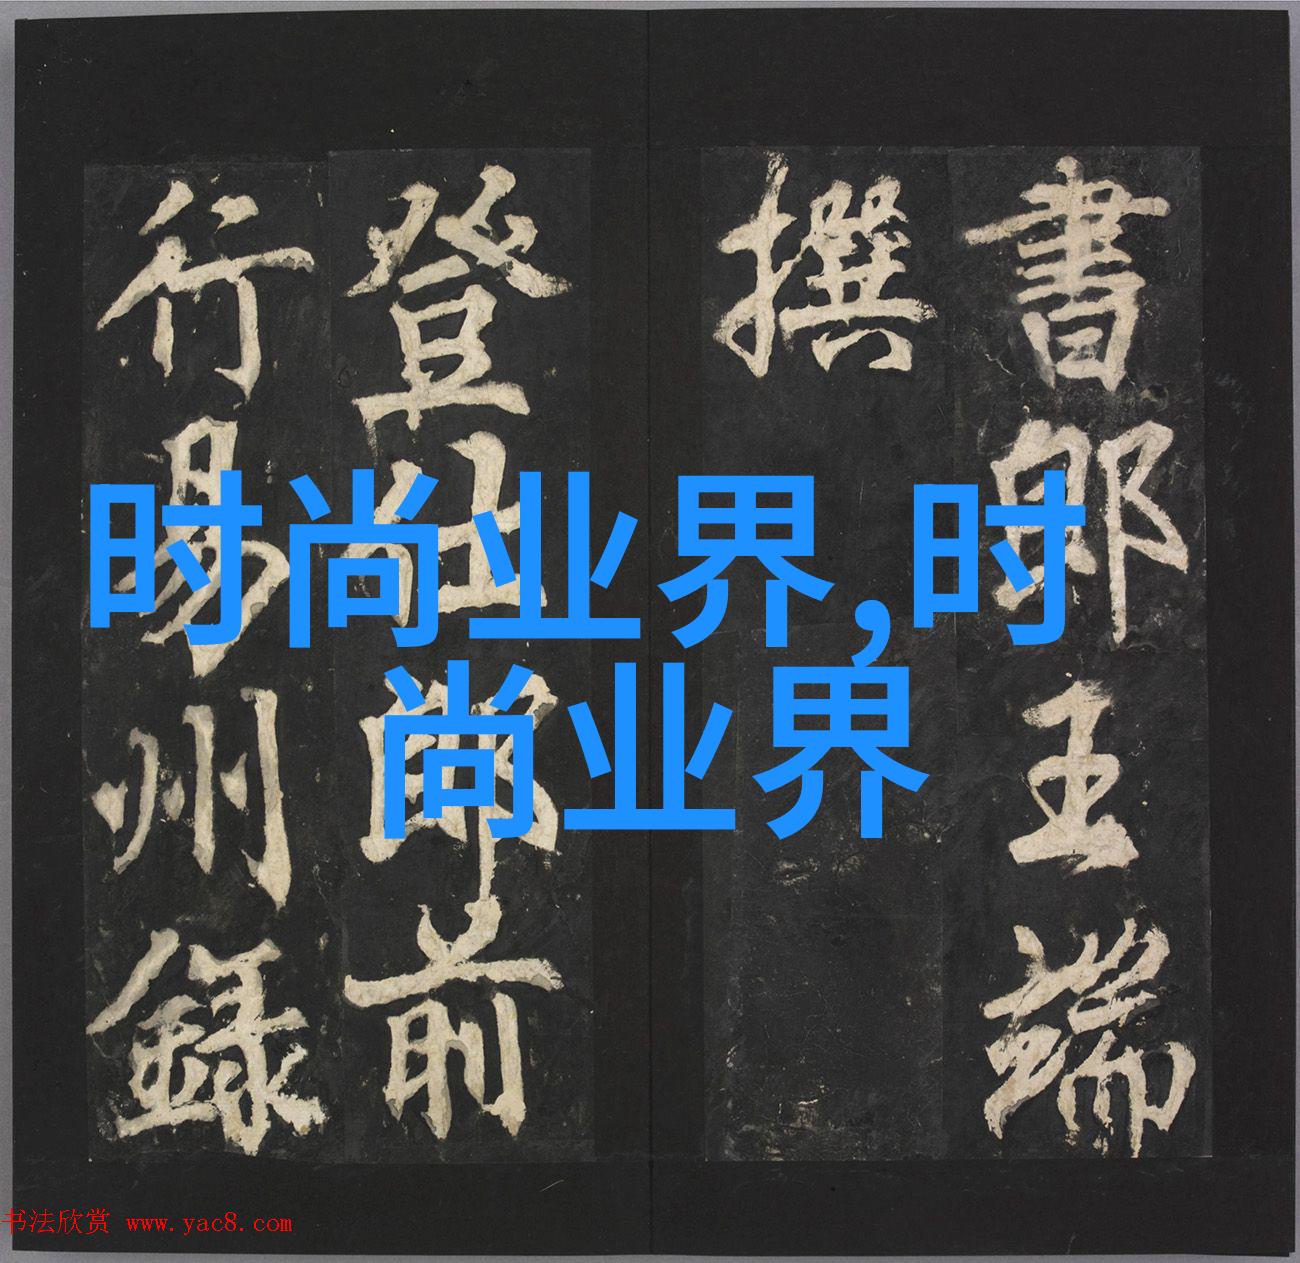 書郎王端
撰
登仕郎前
行易州録
时尚业界,时
尚业界
书法欣赏 www.yac8.com